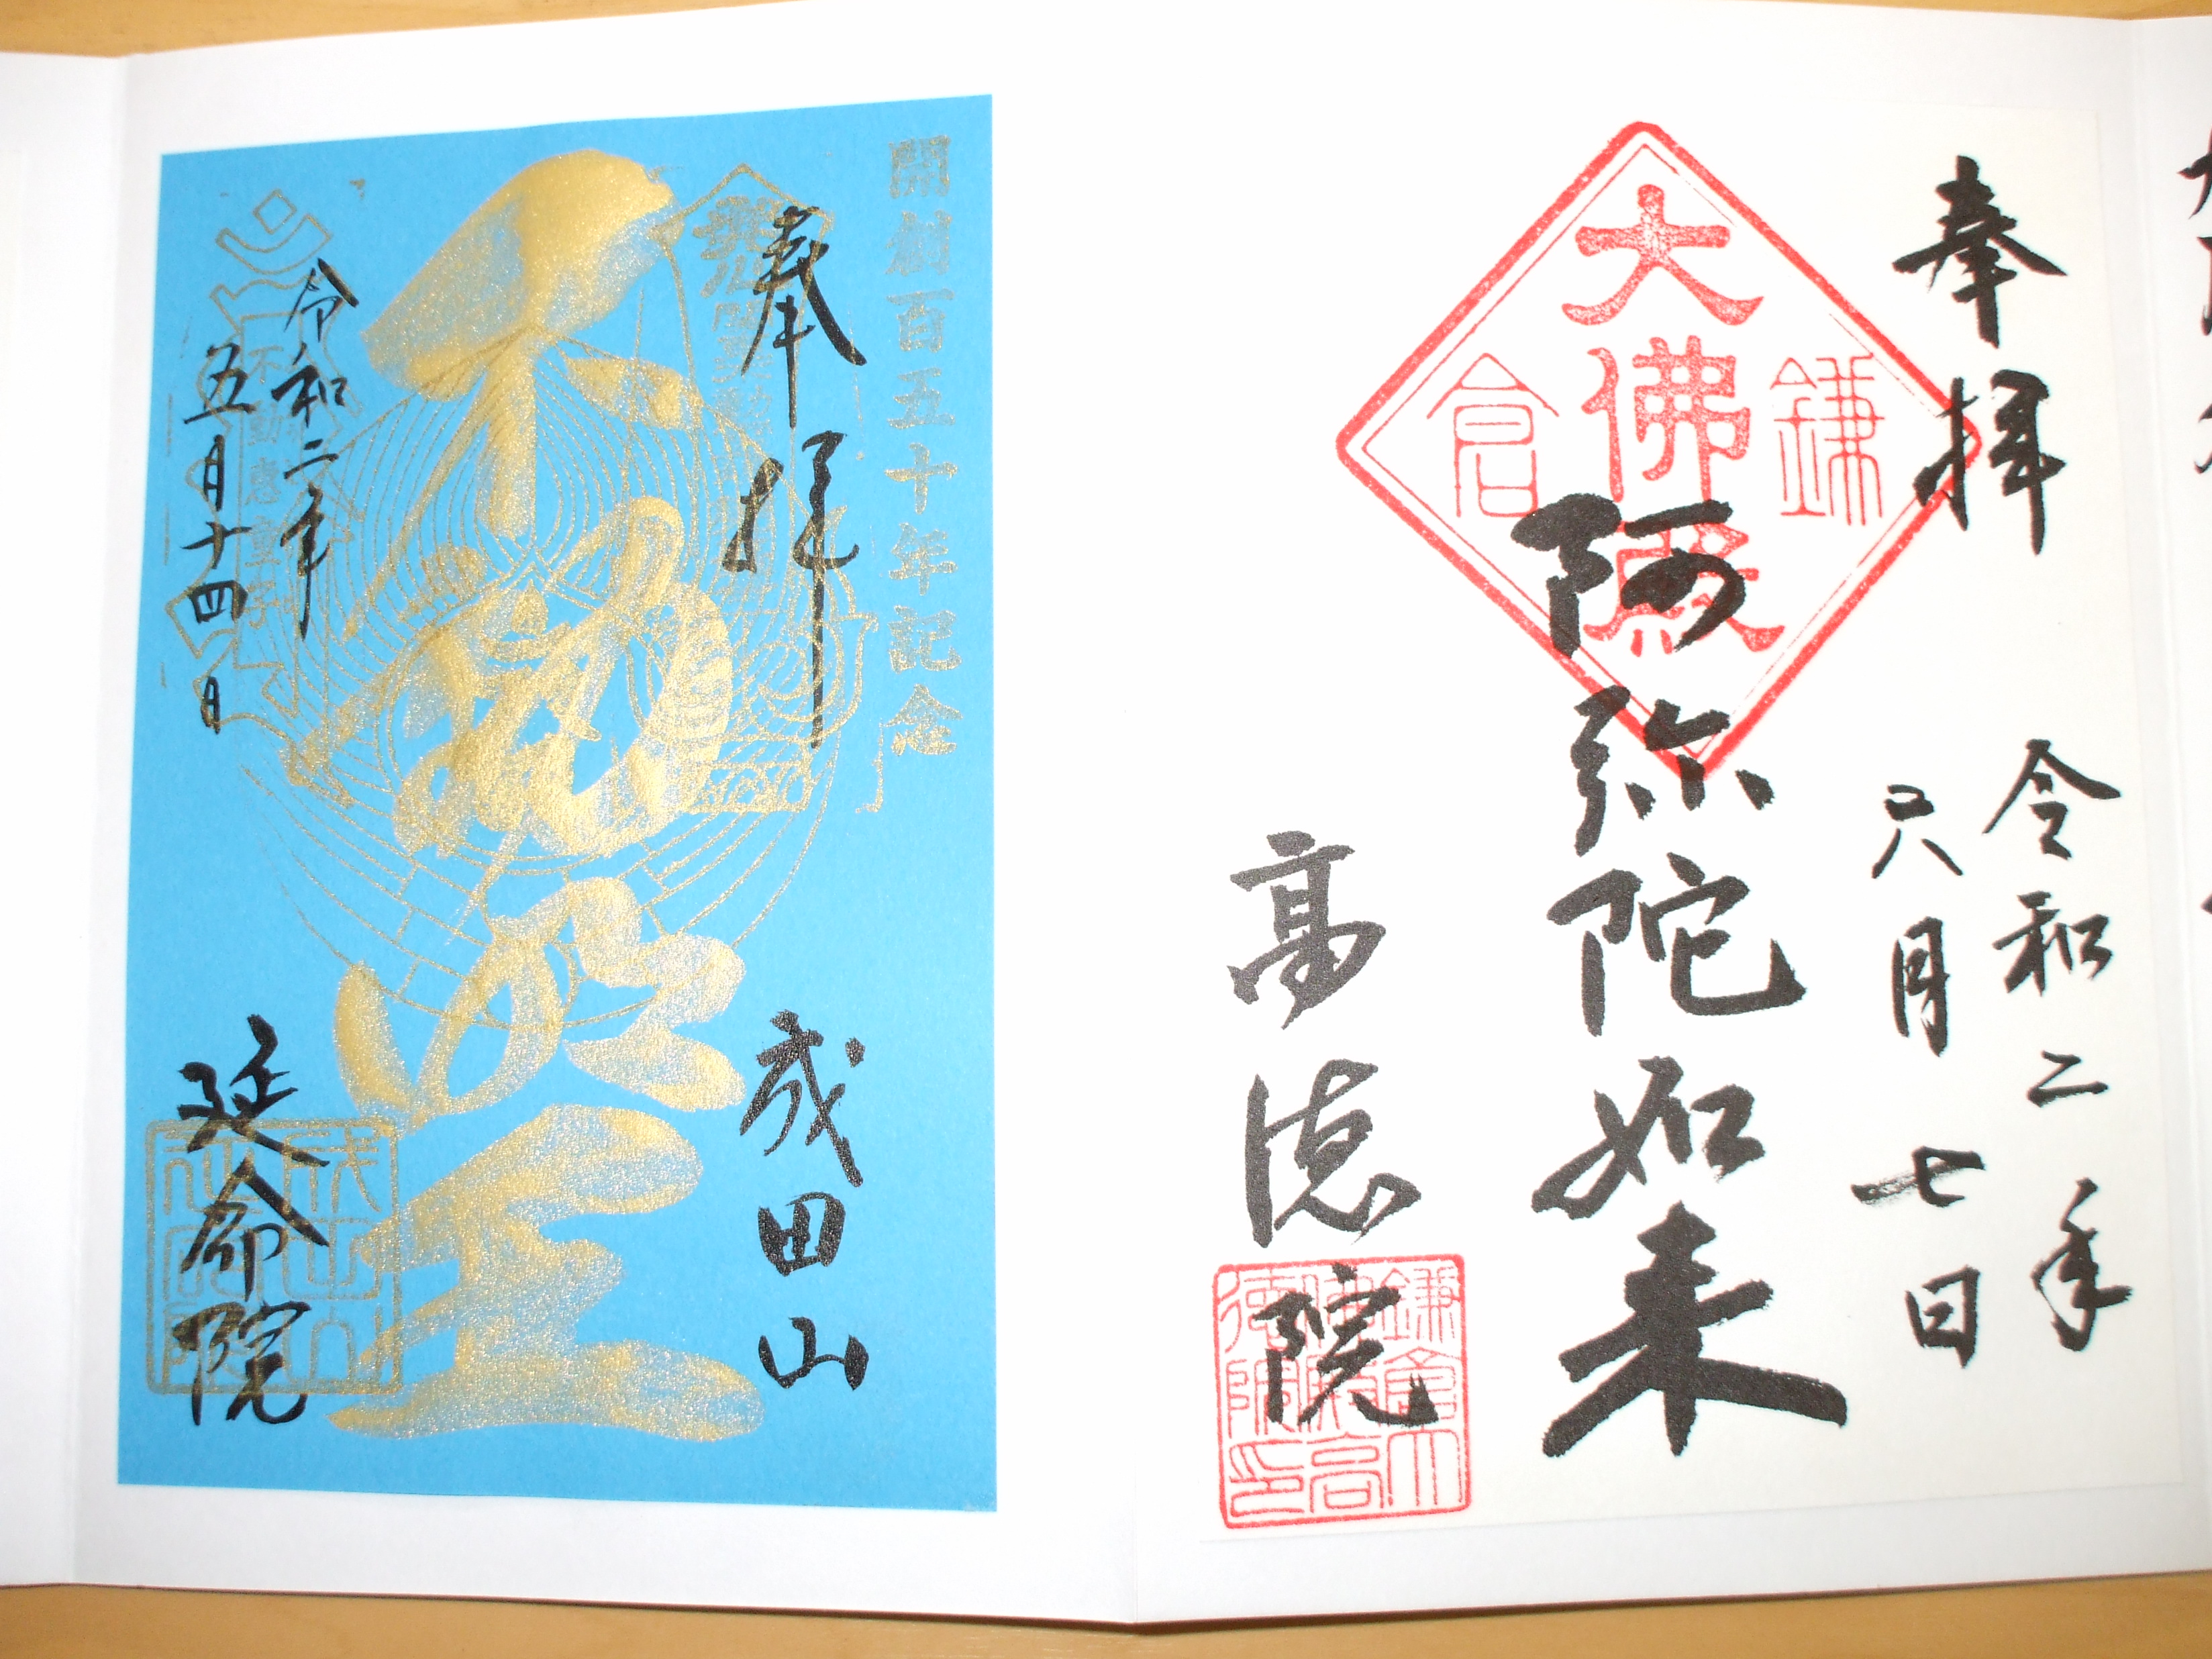 奉拝
令和二年
六月七日
鎌倉
大佛殿
阿弥陀如来
高徳院
開創百五十年記念
奉拝
成田山
不動明王
令和二年
五月十四日
延命院